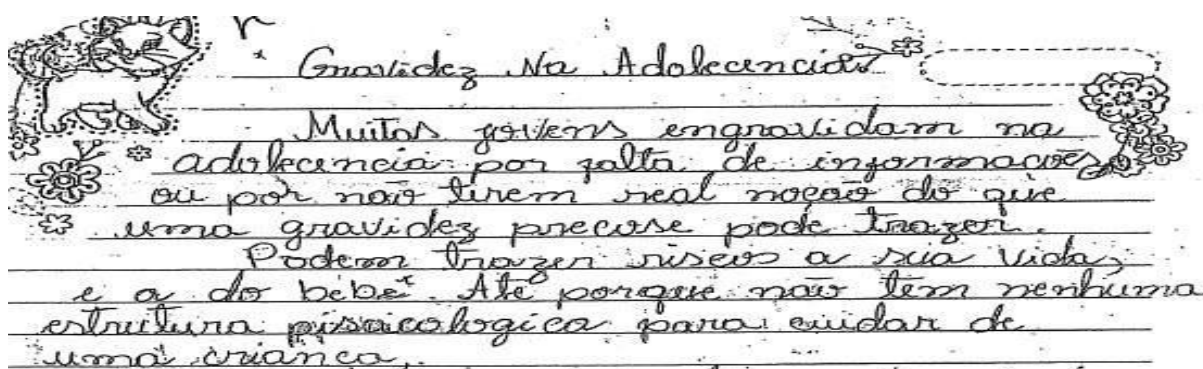 Gravidez Na Adolecencia
Muitas jovens engravidam na
adolecencia por falta de informacoes
ou por não tirem real noção do que
uma gravidez precose pode trazer.
Podem trazer riscos a sua vida,
e a do bebê. Até porque não tem nenhuma
estrutura pisicologica para cuidar de
uma crianca.